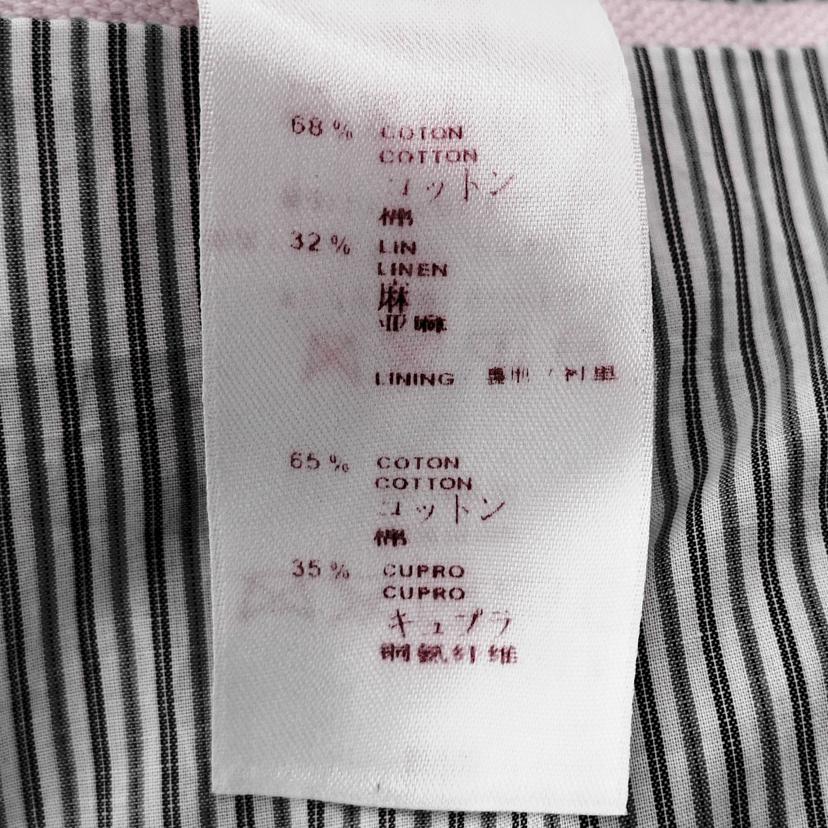 68 % COTON
COTTON
コットン
棉
32 % LIN
LINEN
麻
亚麻
LINING 裏地 / 衬里
65 % COTON
COTTON
コットン
棉
35 % CUPRO
CUPRO
キュプラ
铜氨纤维